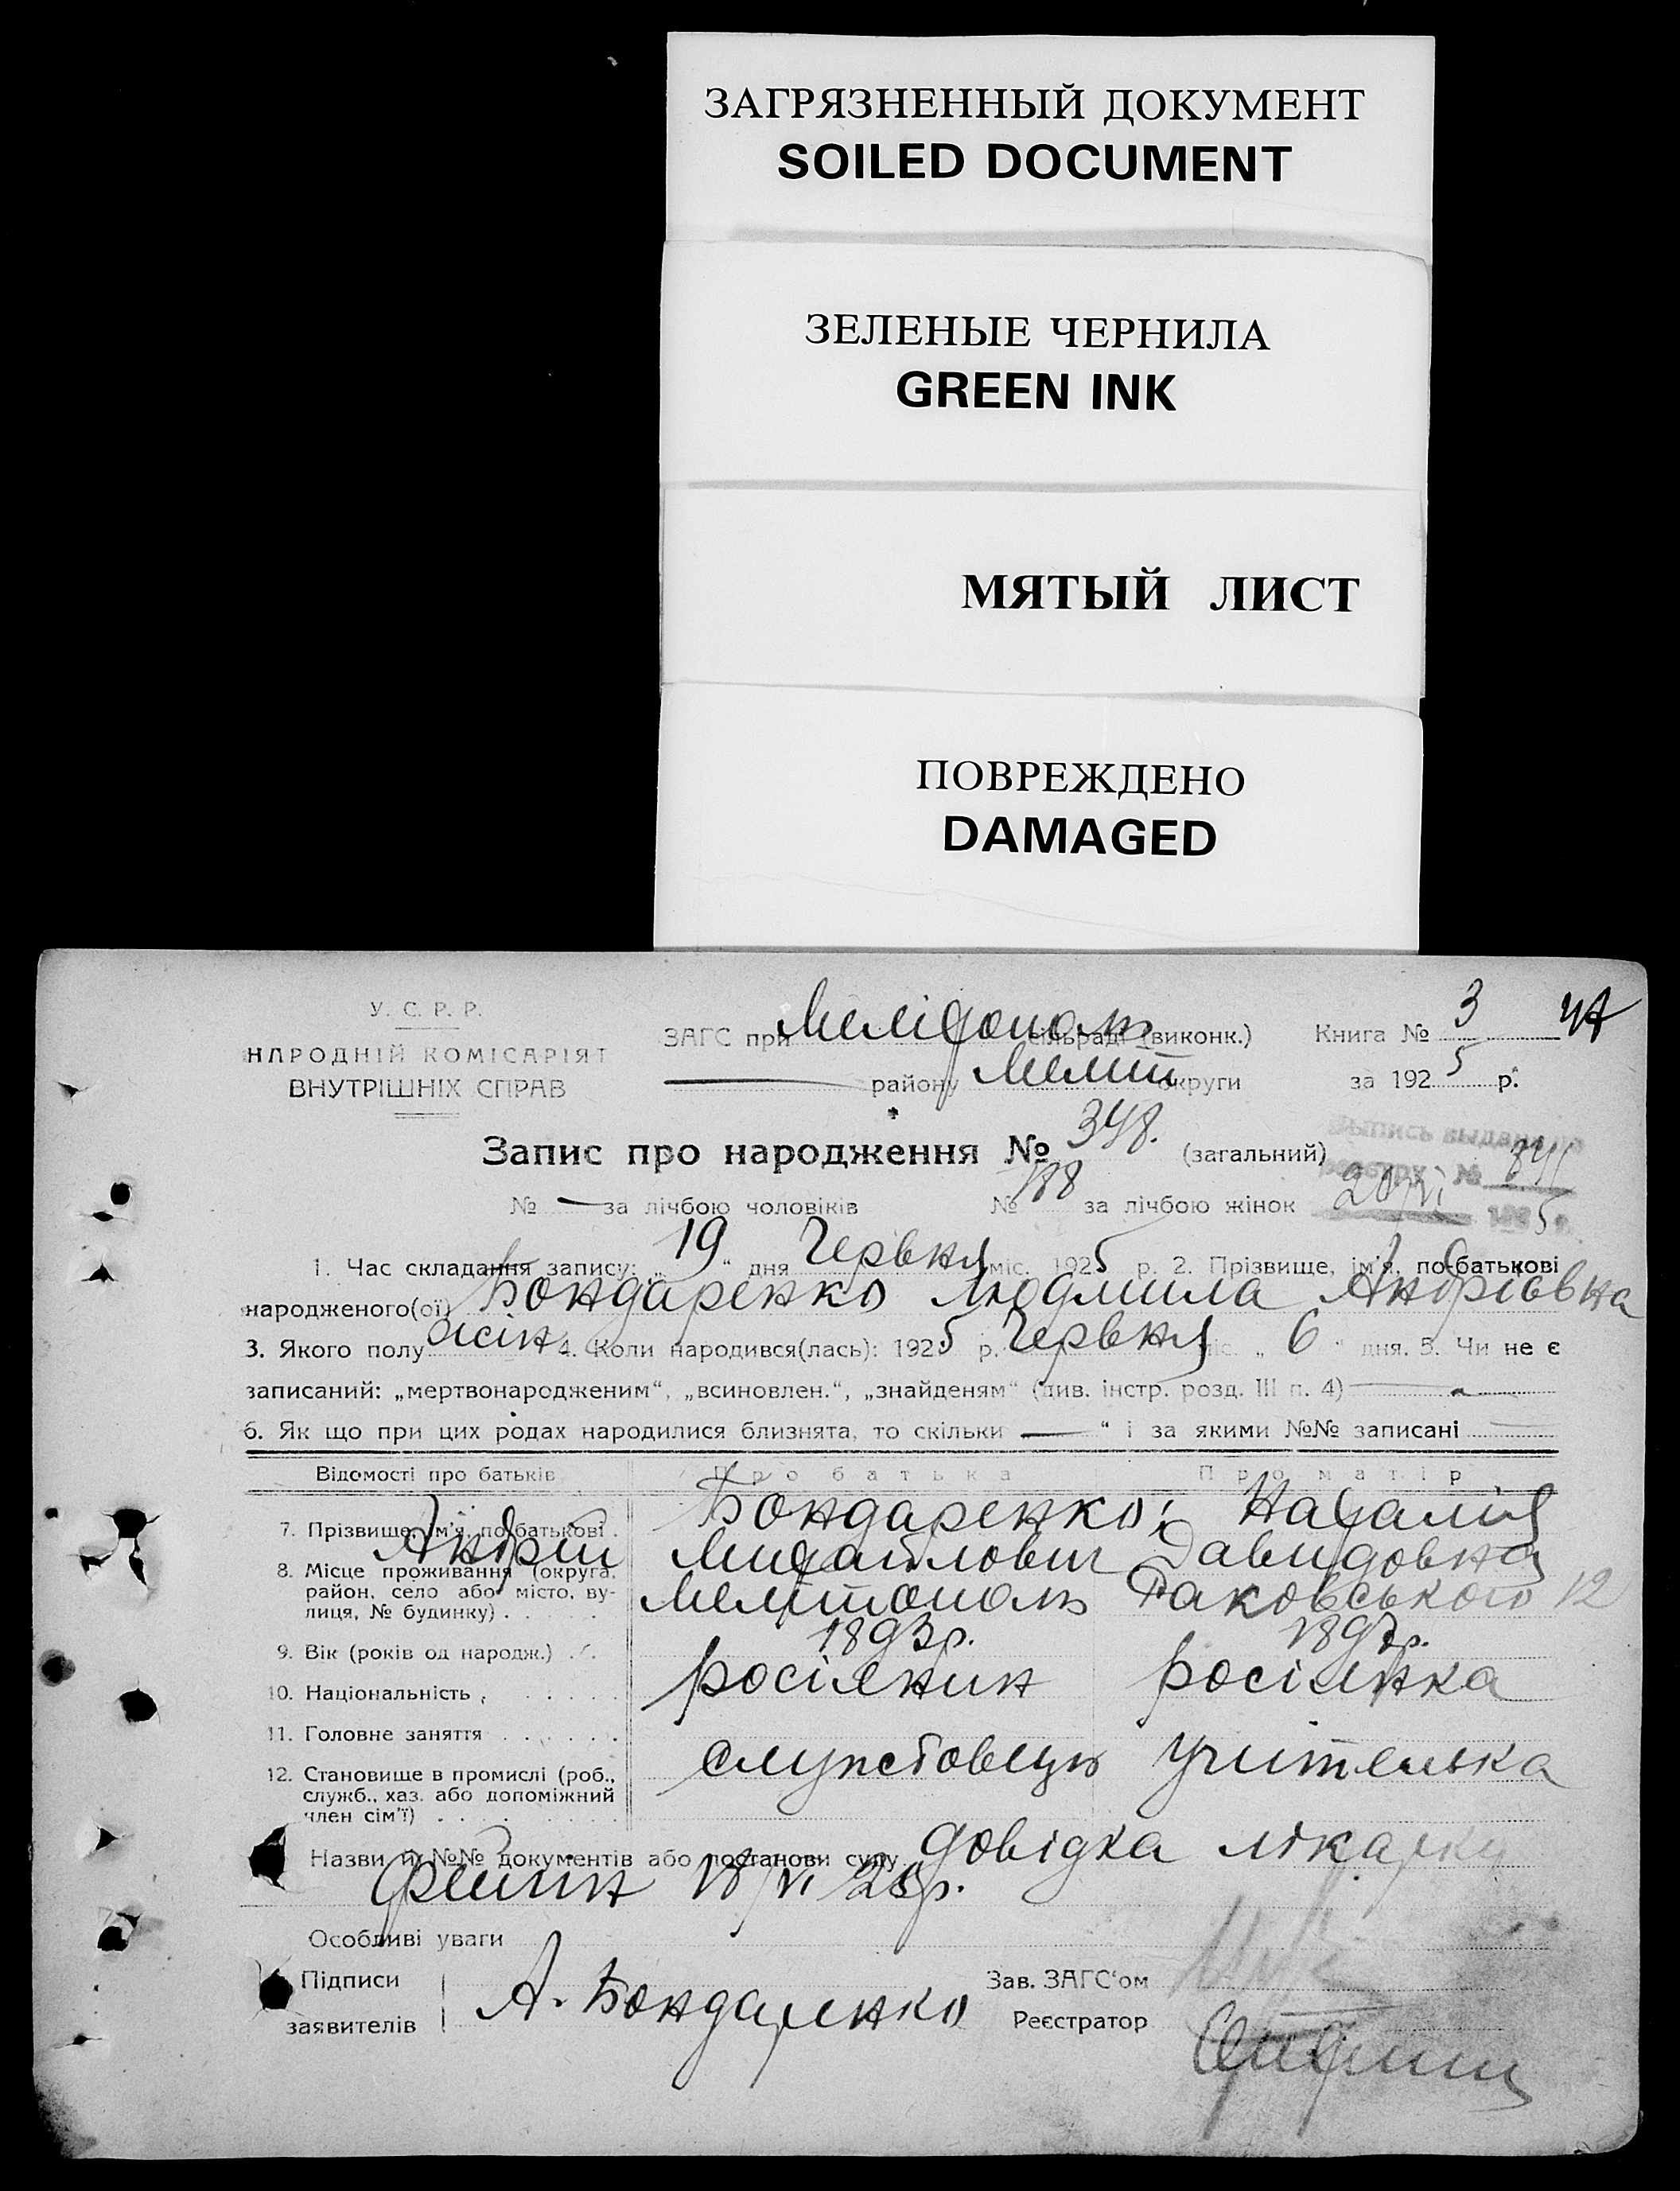 ЗАГРЯЗНЕННЫЙ ДОКУМЕНТ
SOILED DOCUMENT
ЗЕЛЕНЫЕ ЧЕРНИЛА
GREEN INK
МЯТЫЙ ЛИСТ
ПОВРЕЖДЕНО
DAMAGED
У. С. Р. Р.
НАРОДНІЙ КОМІСАРІЯТ
ВНУТРІШНІХ СПРАВ
ЗАГС при Мелітополь сільраді (виконк.)
району Меліт округи
Книга № 3
за 1925 р.
Запис про народження № 348. (загальний)
Выпись выдана по
реестру № 
№ — за лічбою чоловіків № 188 за лічбою жінок
1. Час складання запису: „19“ дня Червня міс. 1925 р. 2. Прізвище, ім'я, по батькові
народженого(ої) Бондаренко Людмила Андріівна
3. Якого полу жін 4. Коли народився(лась): 1925 р. Червня міс. „6“ дня. 5. Чи не є
записаний: „мертвонародженим“, „всиновлен.“, „знайденям“ (див. інстр. розд. III п. 4)
6. Як що при цих родах народилися близнята, то скільки — “ і за якими №№ записані
Відомості про батьків Про батька Про матір
7. Прізвище, ім'я, по батькові Бондаренко; Наталія
Андрій Михайлович Давидовна
8. Місце проживання (округа, район, село або місто, вулиця, № будинку) Мелітополь Раковського 12
9. Вік (років од народж.) 1893р. 1897р.
10. Національність росіянин росіянка
11. Головне заняття
12. Становище в промислі (роб., служб., хаз. або допоміжний член сім'ї) служебовець учителька
Назви й №№ документів або постанови суду довідка лікарки
18/VI 25р.
Особливі уваги
Підписи
заявителів А. Бондаренко
Зав. ЗАГС'ом
Реєстратор